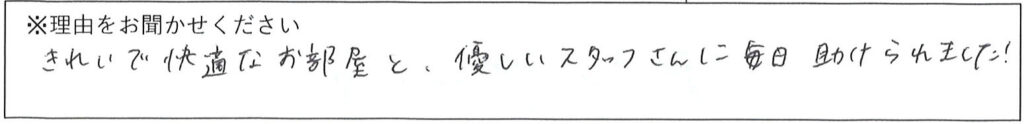 ※理由をお聞かせください
きれいで快適なお部屋と、優しいスタッフさんに毎日助けられました!